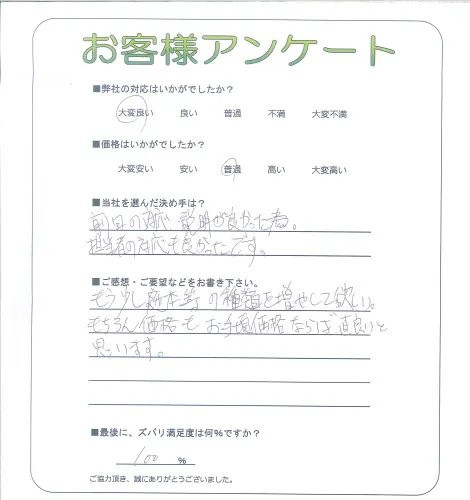 お客様アンケート
■弊社の対応はいかがでしたか？
大変良い 良い 普通 不満 大変不満
■価格はいかがでしたか？
大変安い 安い 普通 高い 大変高い
■当社を選んだ決め手は？
前日の対応、説明が良かった為。
担当者の対応も良かったです。
■ご感想・ご要望などをお書き下さい。
もう少し 等の種類を増やして欲しい。
もちろん価格もお手頃価格ならば尚良いと
思います。
■最後に、ズバリ満足度は何％ですか？
100 ％
ご協力頂き、誠にありがとうございました。